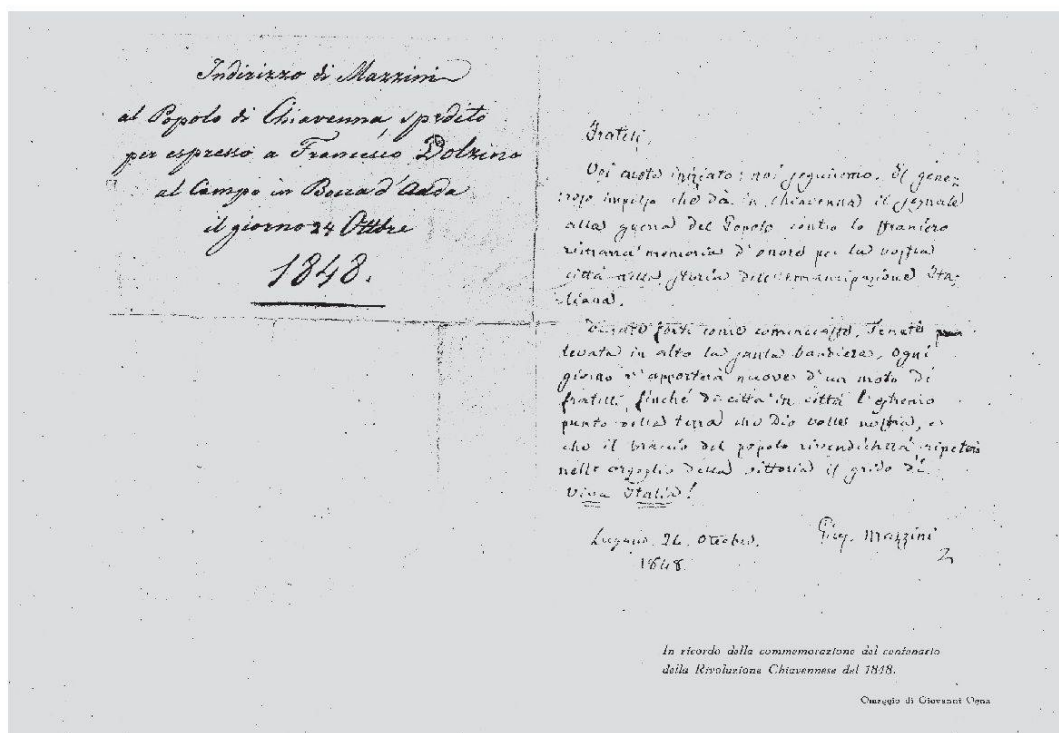 Indirizzo di Mazzini
al Popolo di Chiavenna, spedito
per espresso a Francesco Dolzino
al Campo in Bocca d'Adda
il giorno 24 Ottbre
1848.
Fratelli,
Voi avete iniziato: noi seguiremo. Il gene-
roso impulso che dà in Chiavenna il segnale
alla guerra del Popolo contro lo straniero
rimarrà memoria d'onore per la vostra
città nella storia dell'emancipazione Ita-
liana.
Durate forti come cominciaste. Tenete
levata in alto la santa bandiera. Ogni
giorno v'apporterà nuove d'un moto di
fratelli, finché di città in città l'estremo
punto della terra che Dio volle nostra, e
che il braccio del popolo rivendicherà ripeterà
nello orgoglio della vittoria il grido di
Viva Italia!
Lugano. 24. Ottobre.
1848.
Gius. Mazzini
In ricordo della commemorazione del centenario
della Rivoluzione Chiavennese del 1848.
Omaggio di Giovanni